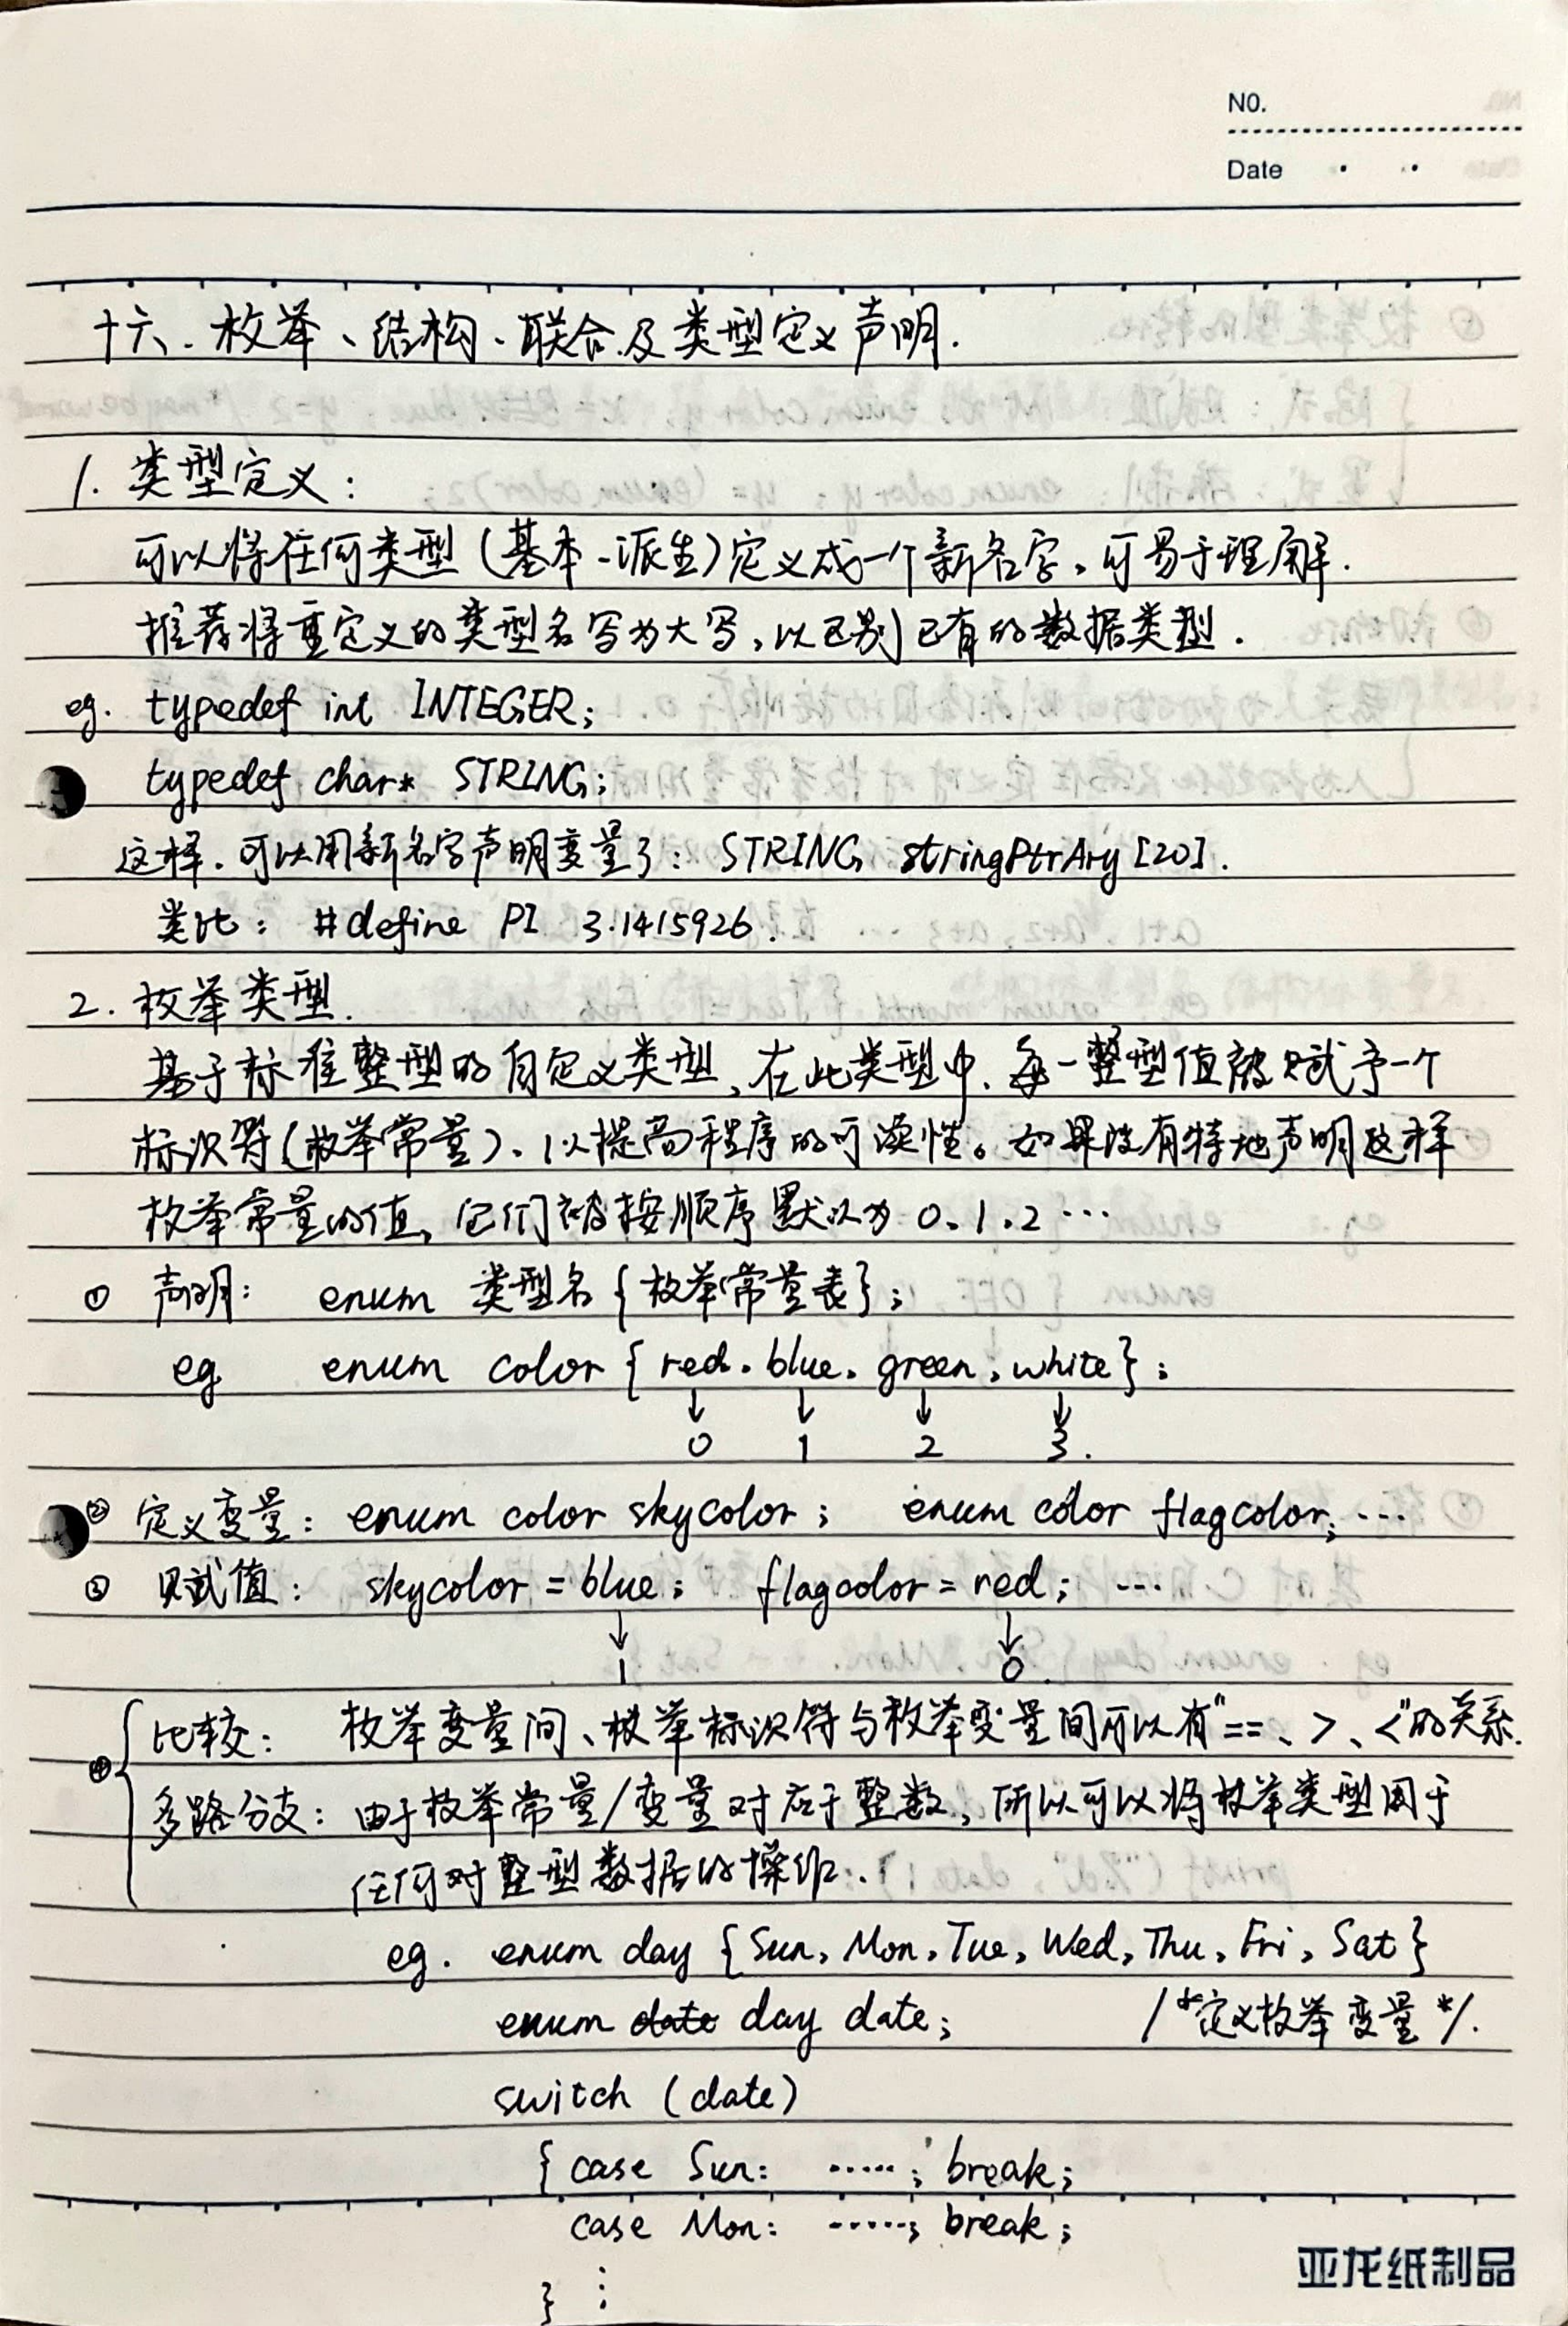 NO.
Date
十六、枚举、结构、联合及类型定义声明.
1. 类型定义:
可以将任何类型(基本、派生)定义成一个新名字,可易于理解.
推荐将重定义的类型名写为大写,以区别已有的数据类型.
eg. typedef int INTEGER;
typedef char* STRING;
这样,可以用新名字声明变量了: STRING stringPtrAry [20].
类比: #define PI 3.1415926.
2. 枚举类型.
基于标准整型的自定义类型,在此类型中,每一整型值被赋予一个
标识符(枚举常量)、以提高程序的可读性。如果没有特地声明这样
枚举常量的值,它们被按顺序默认为 0、1、2 …
① 声明: enum 类型名 {枚举常量表};
eg enum color { red, blue, green, white };
↓ ↓ ↓ ↓
0 1 2 3.
② 定义变量: enum color skycolor; enum color flagcolor; …
③ 赋值: skycolor = blue; flagcolor = red; …
↓ ↓
1 0.
④ 比较: 枚举变量间、枚举标识符与枚举变量间可以有"==、>、<"的关系.
多路分支: 由于枚举常量/变量对应于整数,所以可以将枚举类型用于
任何对整型数据的操作.
eg. enum day {Sun, Mon, Tue, Wed, Thu, Fri, Sat}
enum date day date; /*定义枚举变量*/.
switch (date)
{ case Sun: ……; break;
case Mon: ……; break;
} ⋮
亚龙纸制品